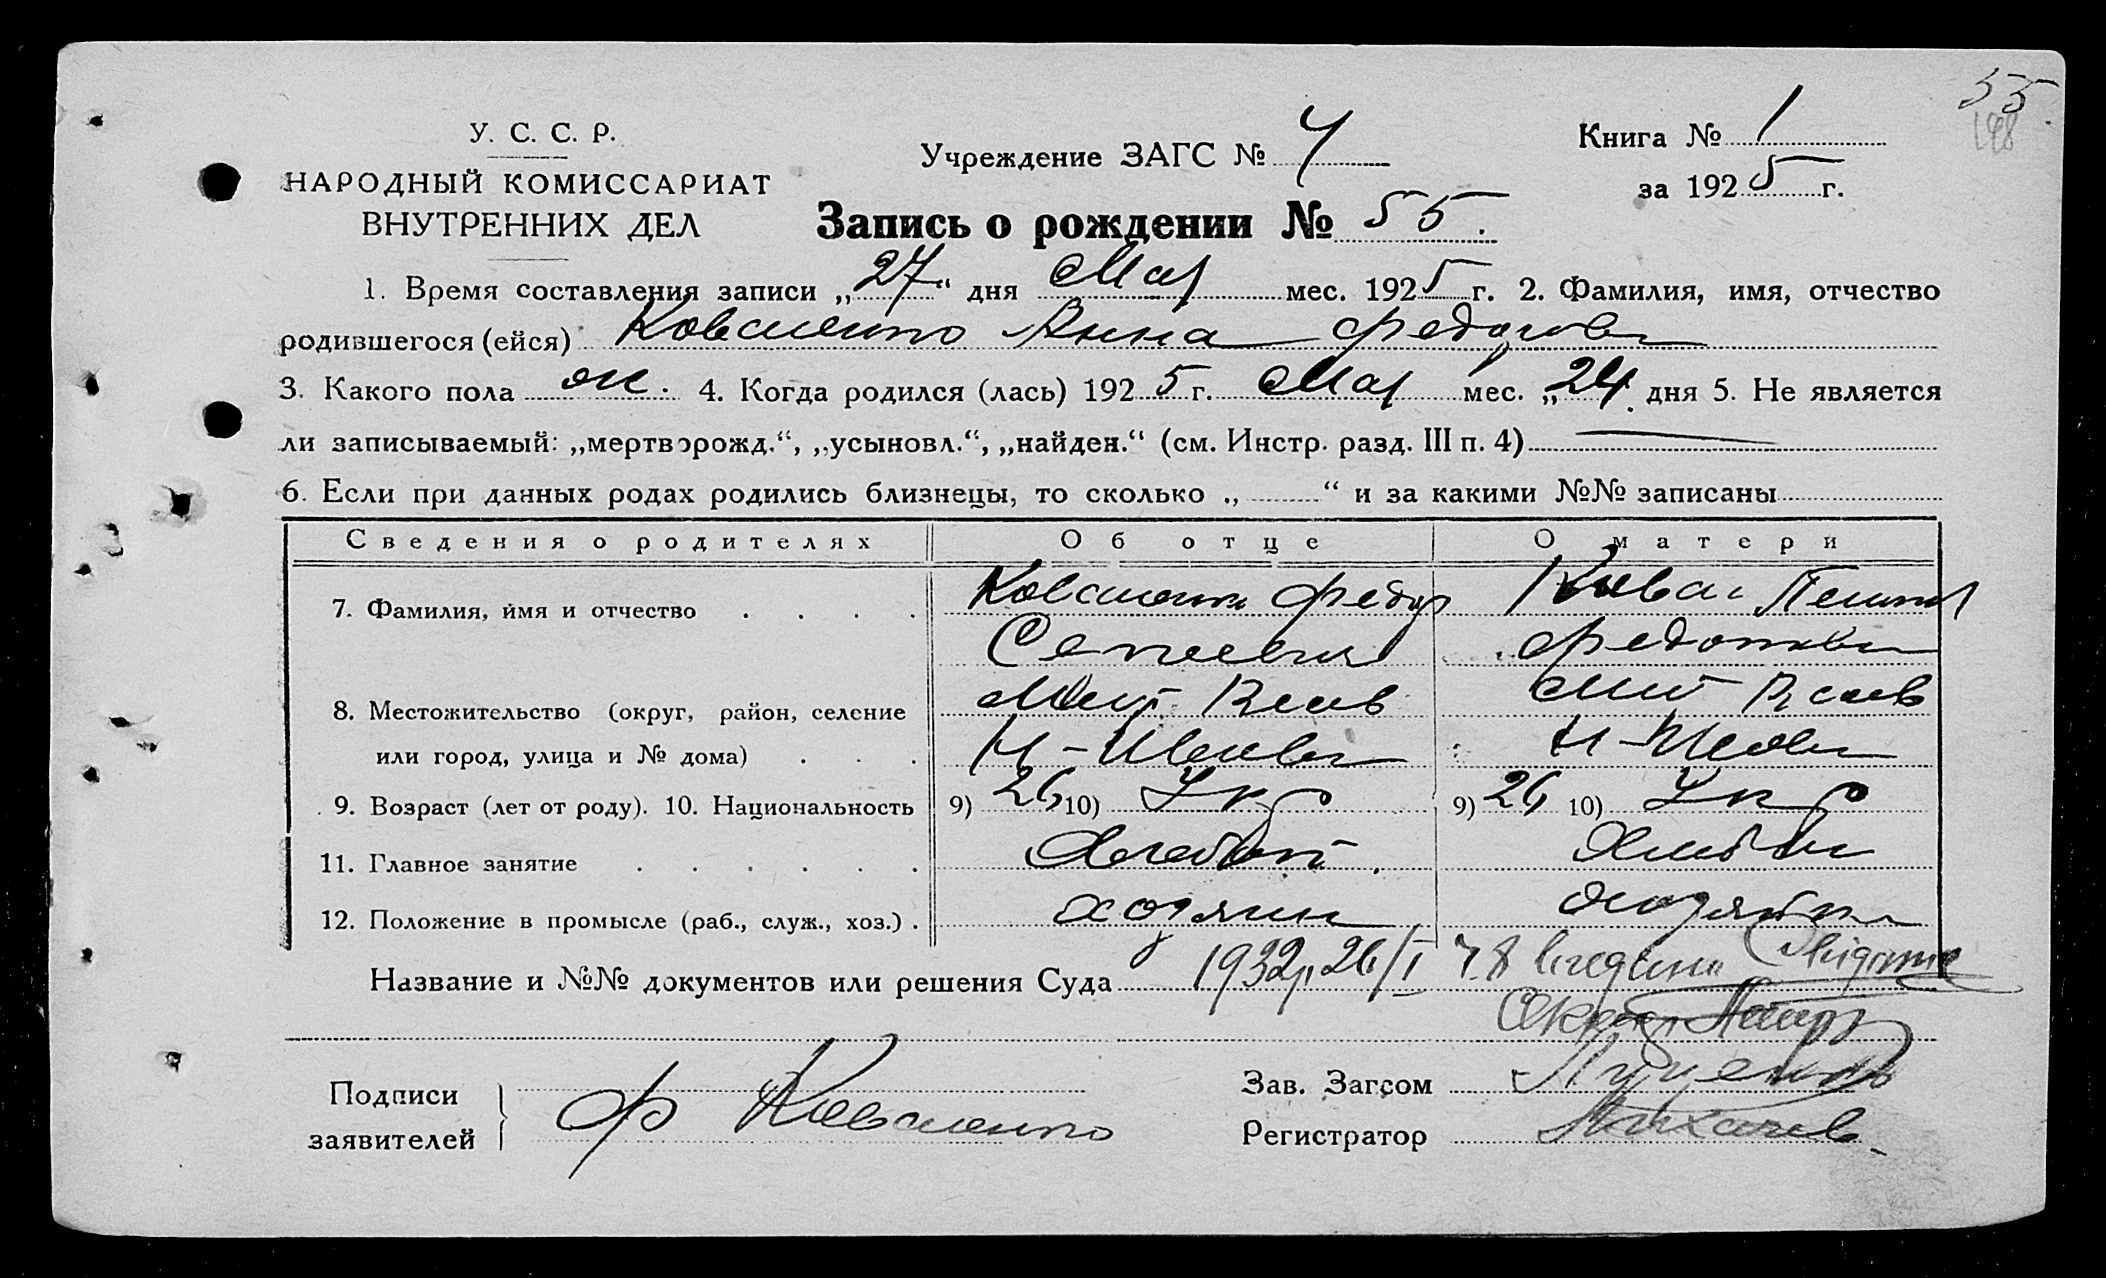 55
198
У. С. С. Р.
НАРОДНЫЙ КОМИССАРИАТ
ВНУТРЕННИХ ДЕЛ
Учреждение ЗАГС № 4
Книга № 1
за 1925 г.
Запись о рождении № 55.
1. Время составления записи „27“ дня Мая мес. 1925 г. 2. Фамилия, имя, отчество
родившегося (ейся) Коваленко Анна Федоровна
3. Какого пола ж. 4. Когда родился (лась) 1925 г. Мая мес. „24. дня 5. Не является
ли записываемый: „мертворожд.“, „усыновл.“, „найден.“ (см. Инстр. разд. III п. 4)
6. Если при данных родах родились близнецы, то сколько „ “ и за какими №№ записаны
Сведения о родителях Об отце О матери
7. Фамилия, имя и отчество Коваленко Федор
Федотовна
8. Местожительство (округ, район, селение
или город, улица и № дома)
9. Возраст (лет от роду). 10. Национальность 9) 26 10) Укр 9) 26 10) Укр
11. Главное занятие Хлебоп
12. Положение в промысле (раб., служ., хоз.) хозяин хозяйка
Название и №№ документов или решения Суда 1932р. 26/I
Подписи
заявителей
Ф Коваленко
Зав. Загсом Луценко
Регистратор